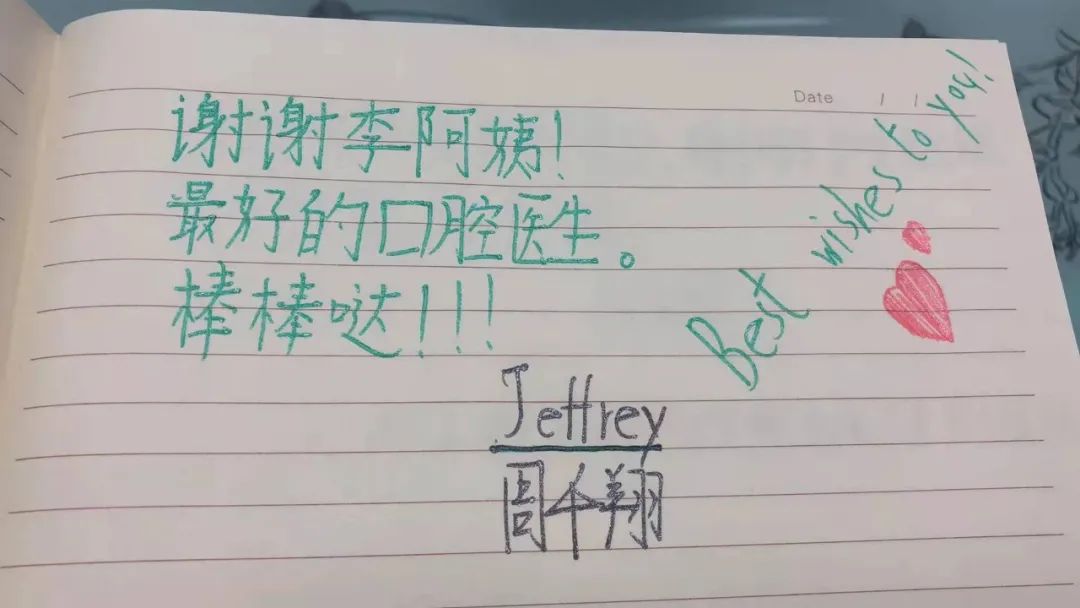 Date / /
谢谢李阿姨!
最好的口腔医生。
棒棒哒!!!
Best wishes to you!
Jeffrey
周千翔